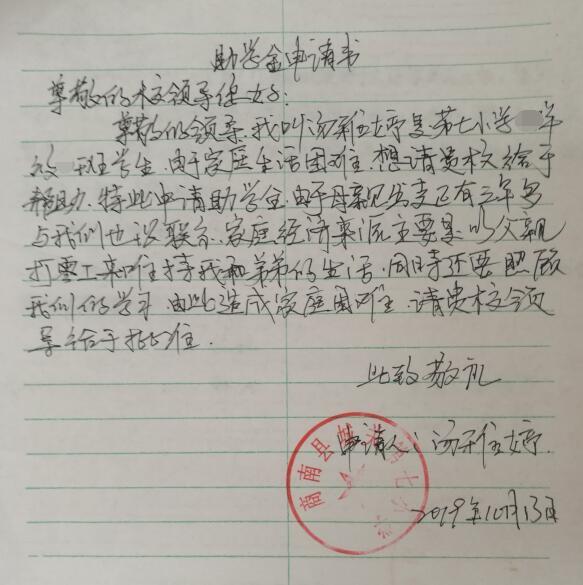 助学金申请书
尊敬的校领导您好:
尊敬的领导,我叫汤雅婷是第七小学 年
级 班学生,由于家庭生活困难,想请贵校给予
帮助,特此申请助学金,由于母亲 已有三年多
与我们也没联系,家庭经济来源主要是以父亲
打零工来维持我和弟弟的生活,同时还要照顾
我们的学习,由此造成家庭困难,请贵校领
导给予批准.
此致敬礼
申请人:汤雅婷.
2019年10月13日
商南县 第七小学